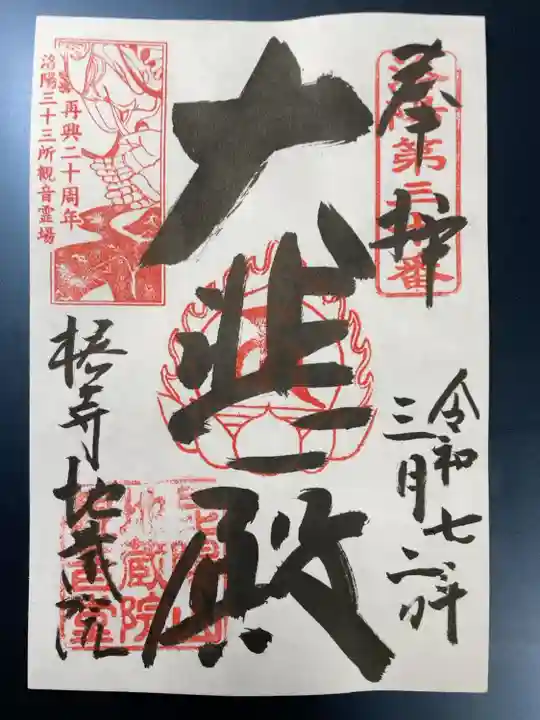 奉拝
洛陽第三十番
令和七年
三月二日
大悲殿
再興二十周年
洛陽三十三所観音霊場
椿寺地蔵院
地蔵院